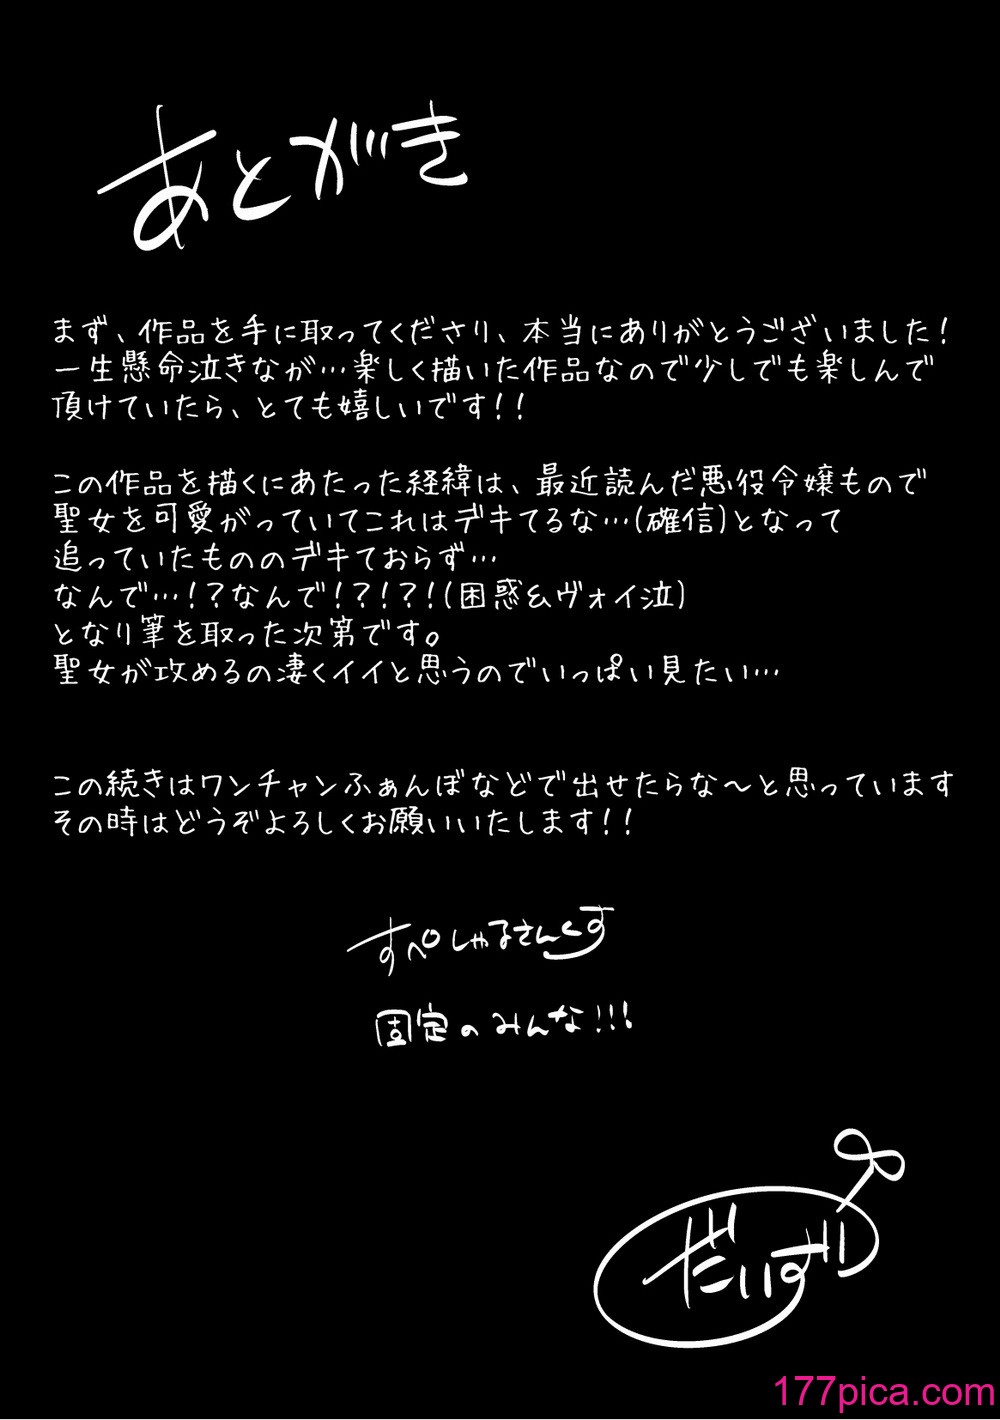 あとがき
まず、作品を手に取ってくださり、本当にありがとうございました！
一生懸命泣きなが…楽しく描いた作品なので少しでも楽しんで
頂けていたら、とても嬉しいです！！
この作品を描くにあたった経緯は、最近読んだ悪役令嬢もので
聖女を可愛がっていてこれはデキてるな…(確信)となって
追っていたもののデキておらず…
なんで…！？なんで！？！？！(困惑&ヴォイ泣)
となり筆を取った次第です。
聖女が攻めるの凄くイイと思うのでいっぱい見たい…
この続きはワンチャンふぁんぼなどで出せたらな～と思っています
その時はどうぞよろしくお願いいたします！！
すぺしゃるさんくす
固定のみんな！！！
だいず
177pica.com